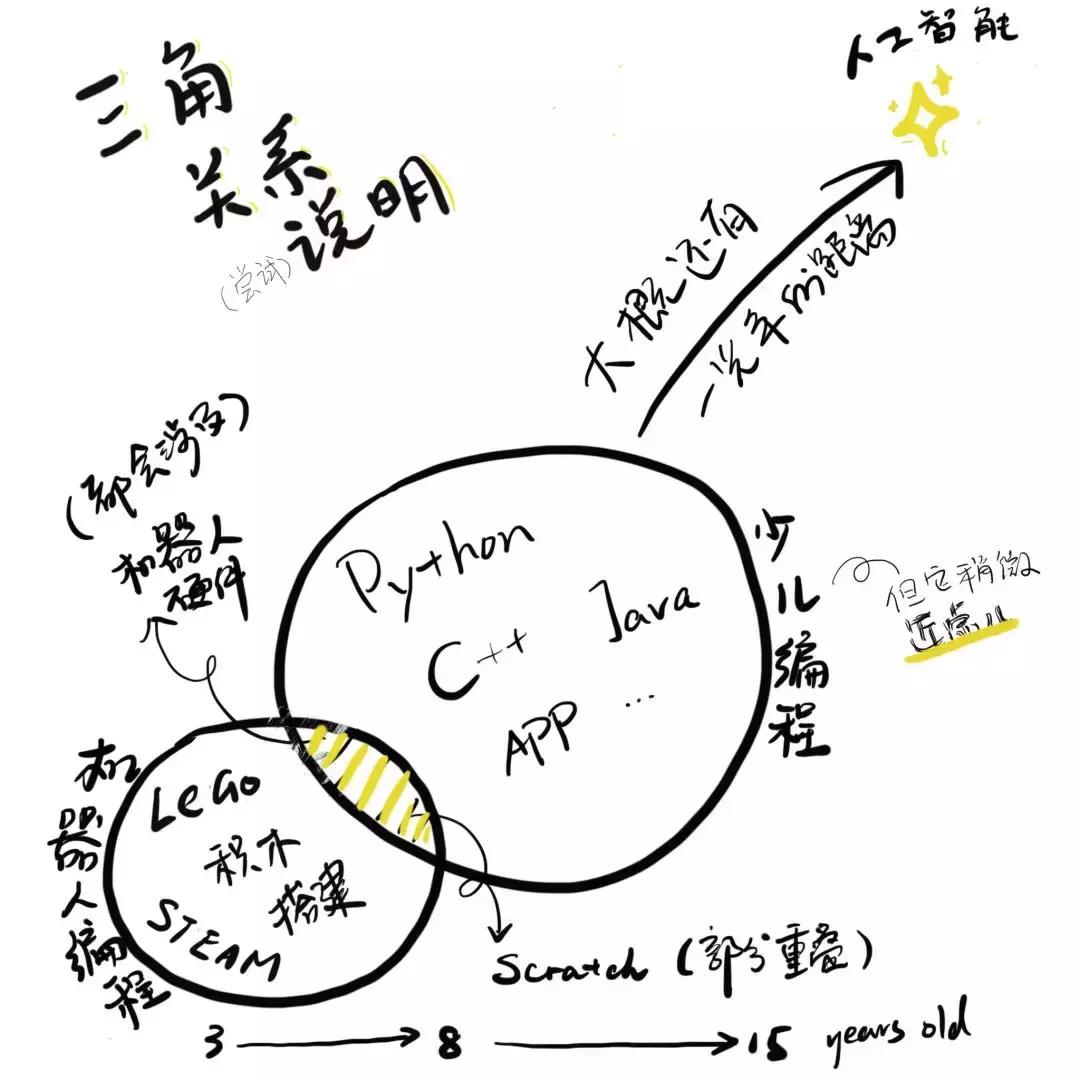 三角
关系
(尝试)说明
人工智能
大概还有
一光年的距离
(都会涉及)
机器人
硬件
Python
C++ Java
APP ...
少儿编程
但它稍微
近点儿
机器人编程
LeGo
积木
搭建
STEAM
Scratch (部分重叠)
3 8 15 years old